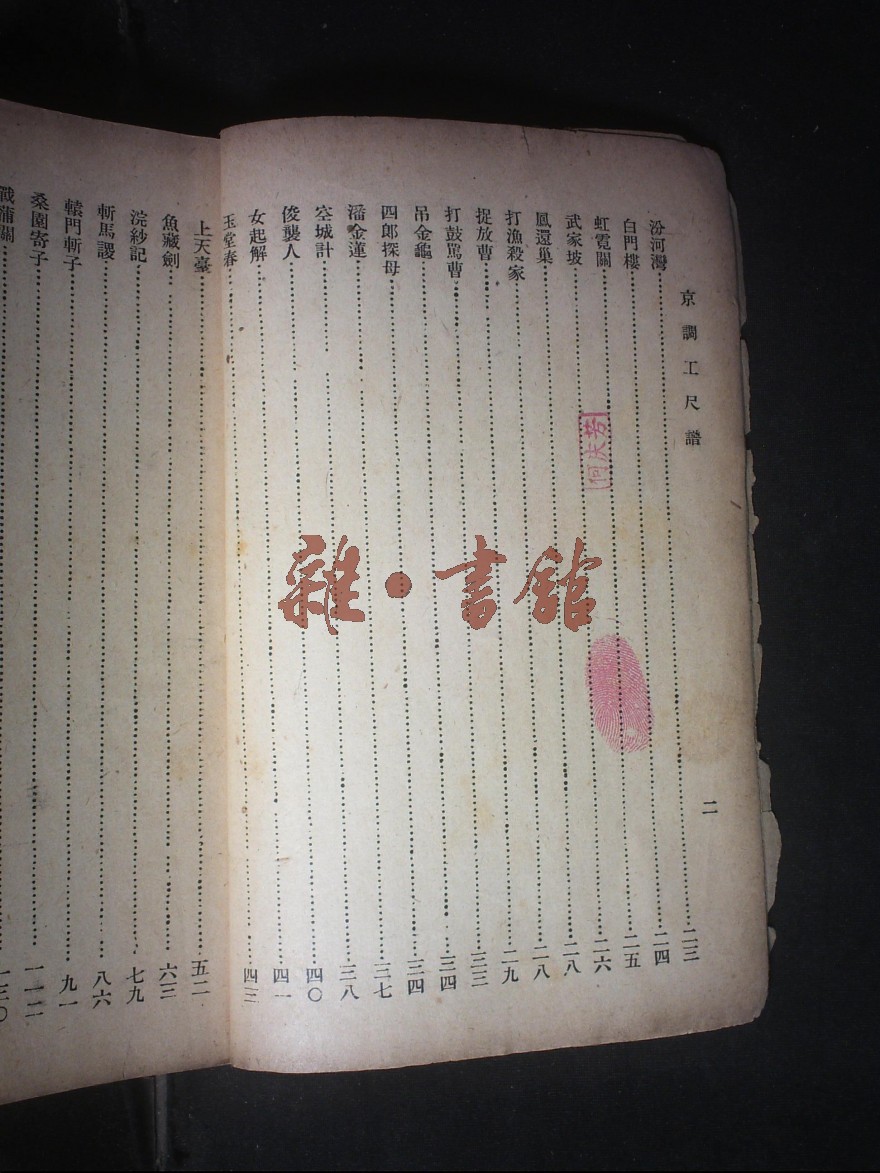 京調工尺譜 二
汾河灣……二三
白門樓……二四
虹霓關……二五
武家坡……二六
鳳還巢……二八
打漁殺家……二八
捉放曹……二九
打鼓罵曹……三三
吊金龜……三四
四郎探母……三四
潘金蓮……三七
空城計……三八
俊襲人……四〇
女起解……四一
玉堂春……四三
上天臺……五二
魚藏劍……六三
浣紗記……七九
斬馬謖……八六
轅門斬子……九一
桑園寄子……一一二
戰蒲關……一三〇
雜·書館